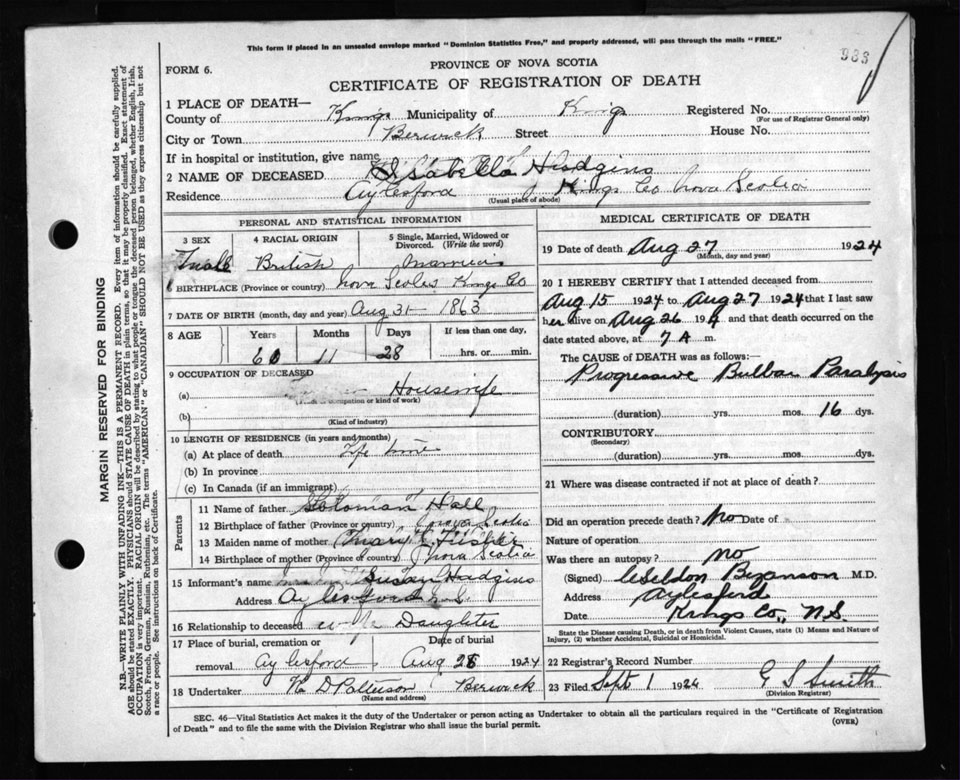 This form if placed in an unsealed envelope marked "Dominion Statistics Free," and properly addressed, will pass through the mails "FREE."
983
FORM 6.
PROVINCE OF NOVA SCOTIA
CERTIFICATE OF REGISTRATION OF DEATH
MARGIN RESERVED FOR BINDING
N.B.—WRITE PLAINLY WITH UNFADING INK—THIS IS A PERMANENT RECORD. Every item of information should be carefully supplied.
AGE should be stated EXACTLY. PHYSICIANS should STATE CAUSE OF DEATH in plain terms, so that it may be properly classified. Exact statement of
OCCUPATION is very important. RACIAL ORIGIN will be described by stating to what people or tongue the deceased person belonged, whether English, Irish,
Scotch, French, German, Russian, Ruthenian, etc. The terms "AMERICAN" or "CANADIAN" SHOULD NOT BE USED as they express citizenship but not
a race or people. See instructions on back of Certificate.
1 PLACE OF DEATH—
County of Kings Municipality of Kings Registered No.
(For use of Registrar General only)
City or Town Berwick Street House No.
If in hospital or institution, give name
2 NAME OF DECEASED Isabella Hudgins
Residence Aylesford Kings Co Nova Scotia
(Usual place of abode)
PERSONAL AND STATISTICAL INFORMATION
3 SEX
4 RACIAL ORIGIN British
5 Single, Married, Widowed or Divorced. (Write the word) Married
6 BIRTHPLACE (Province or country) Nova Scotia Kings Co
7 DATE OF BIRTH (month, day and year) Aug 31 - 1863
8 AGE Years Months Days If less than one day,
60 11 28 hrs. or min.
9 OCCUPATION OF DECEASED
(a) Housewife
(Trade, occupation or kind of work)
(b)
(Kind of industry)
10 LENGTH OF RESIDENCE (in years and months)
(a) At place of death Life time
(b) In province
(c) In Canada (if an immigrant)
Parents
11 Name of father Soloman Hall
12 Birthplace of father (Province or country) Nova Scotia
13 Maiden name of mother Mary Fisher
14 Birthplace of mother (Province or country) Nova Scotia
15 Informant's name Susan Hudgins
Address Aylesford N.S.
16 Relationship to deceased Daughter
17 Place of burial, cremation or removal Aylesford Date of burial Aug 28 1924
18 Undertaker D Patterson Berwick
(Name and address)
MEDICAL CERTIFICATE OF DEATH
19 Date of death Aug 27 1924
(Month, day and year)
20 I HEREBY CERTIFY that I attended deceased from
Aug 15 1924 to Aug 27 1924 that I last saw
her alive on Aug 26 192 and that death occurred on the
date stated above, at 7 A m.
The CAUSE OF DEATH was as follows:
Progressive Bulbar Paralysis
(duration) yrs. mos. 16 dys.
CONTRIBUTORY
(Secondary)
(duration) yrs. mos. dys.
21 Where was disease contracted if not at place of death?
Did an operation precede death? No Date of
Nature of operation
Was there an autopsy? no
(Signed) Bezanson M.D.
Address Aylesford
Date Kings Co., N.S.
State the Disease causing Death, or in death from Violent Causes, state (1) Means and Nature of
Injury, (2) whether Accidental, Suicidal or Homicidal.
22 Registrar's Record Number
23 Filed Sept 1 1924 G S Smith
(Division Registrar)
SEC. 46—Vital Statistics Act makes it the duty of the Undertaker or person acting as Undertaker to obtain all the particulars required in the "Certificate of Registration
of Death" and to file the same with the Division Registrar who shall issue the burial permit.
(OVER)